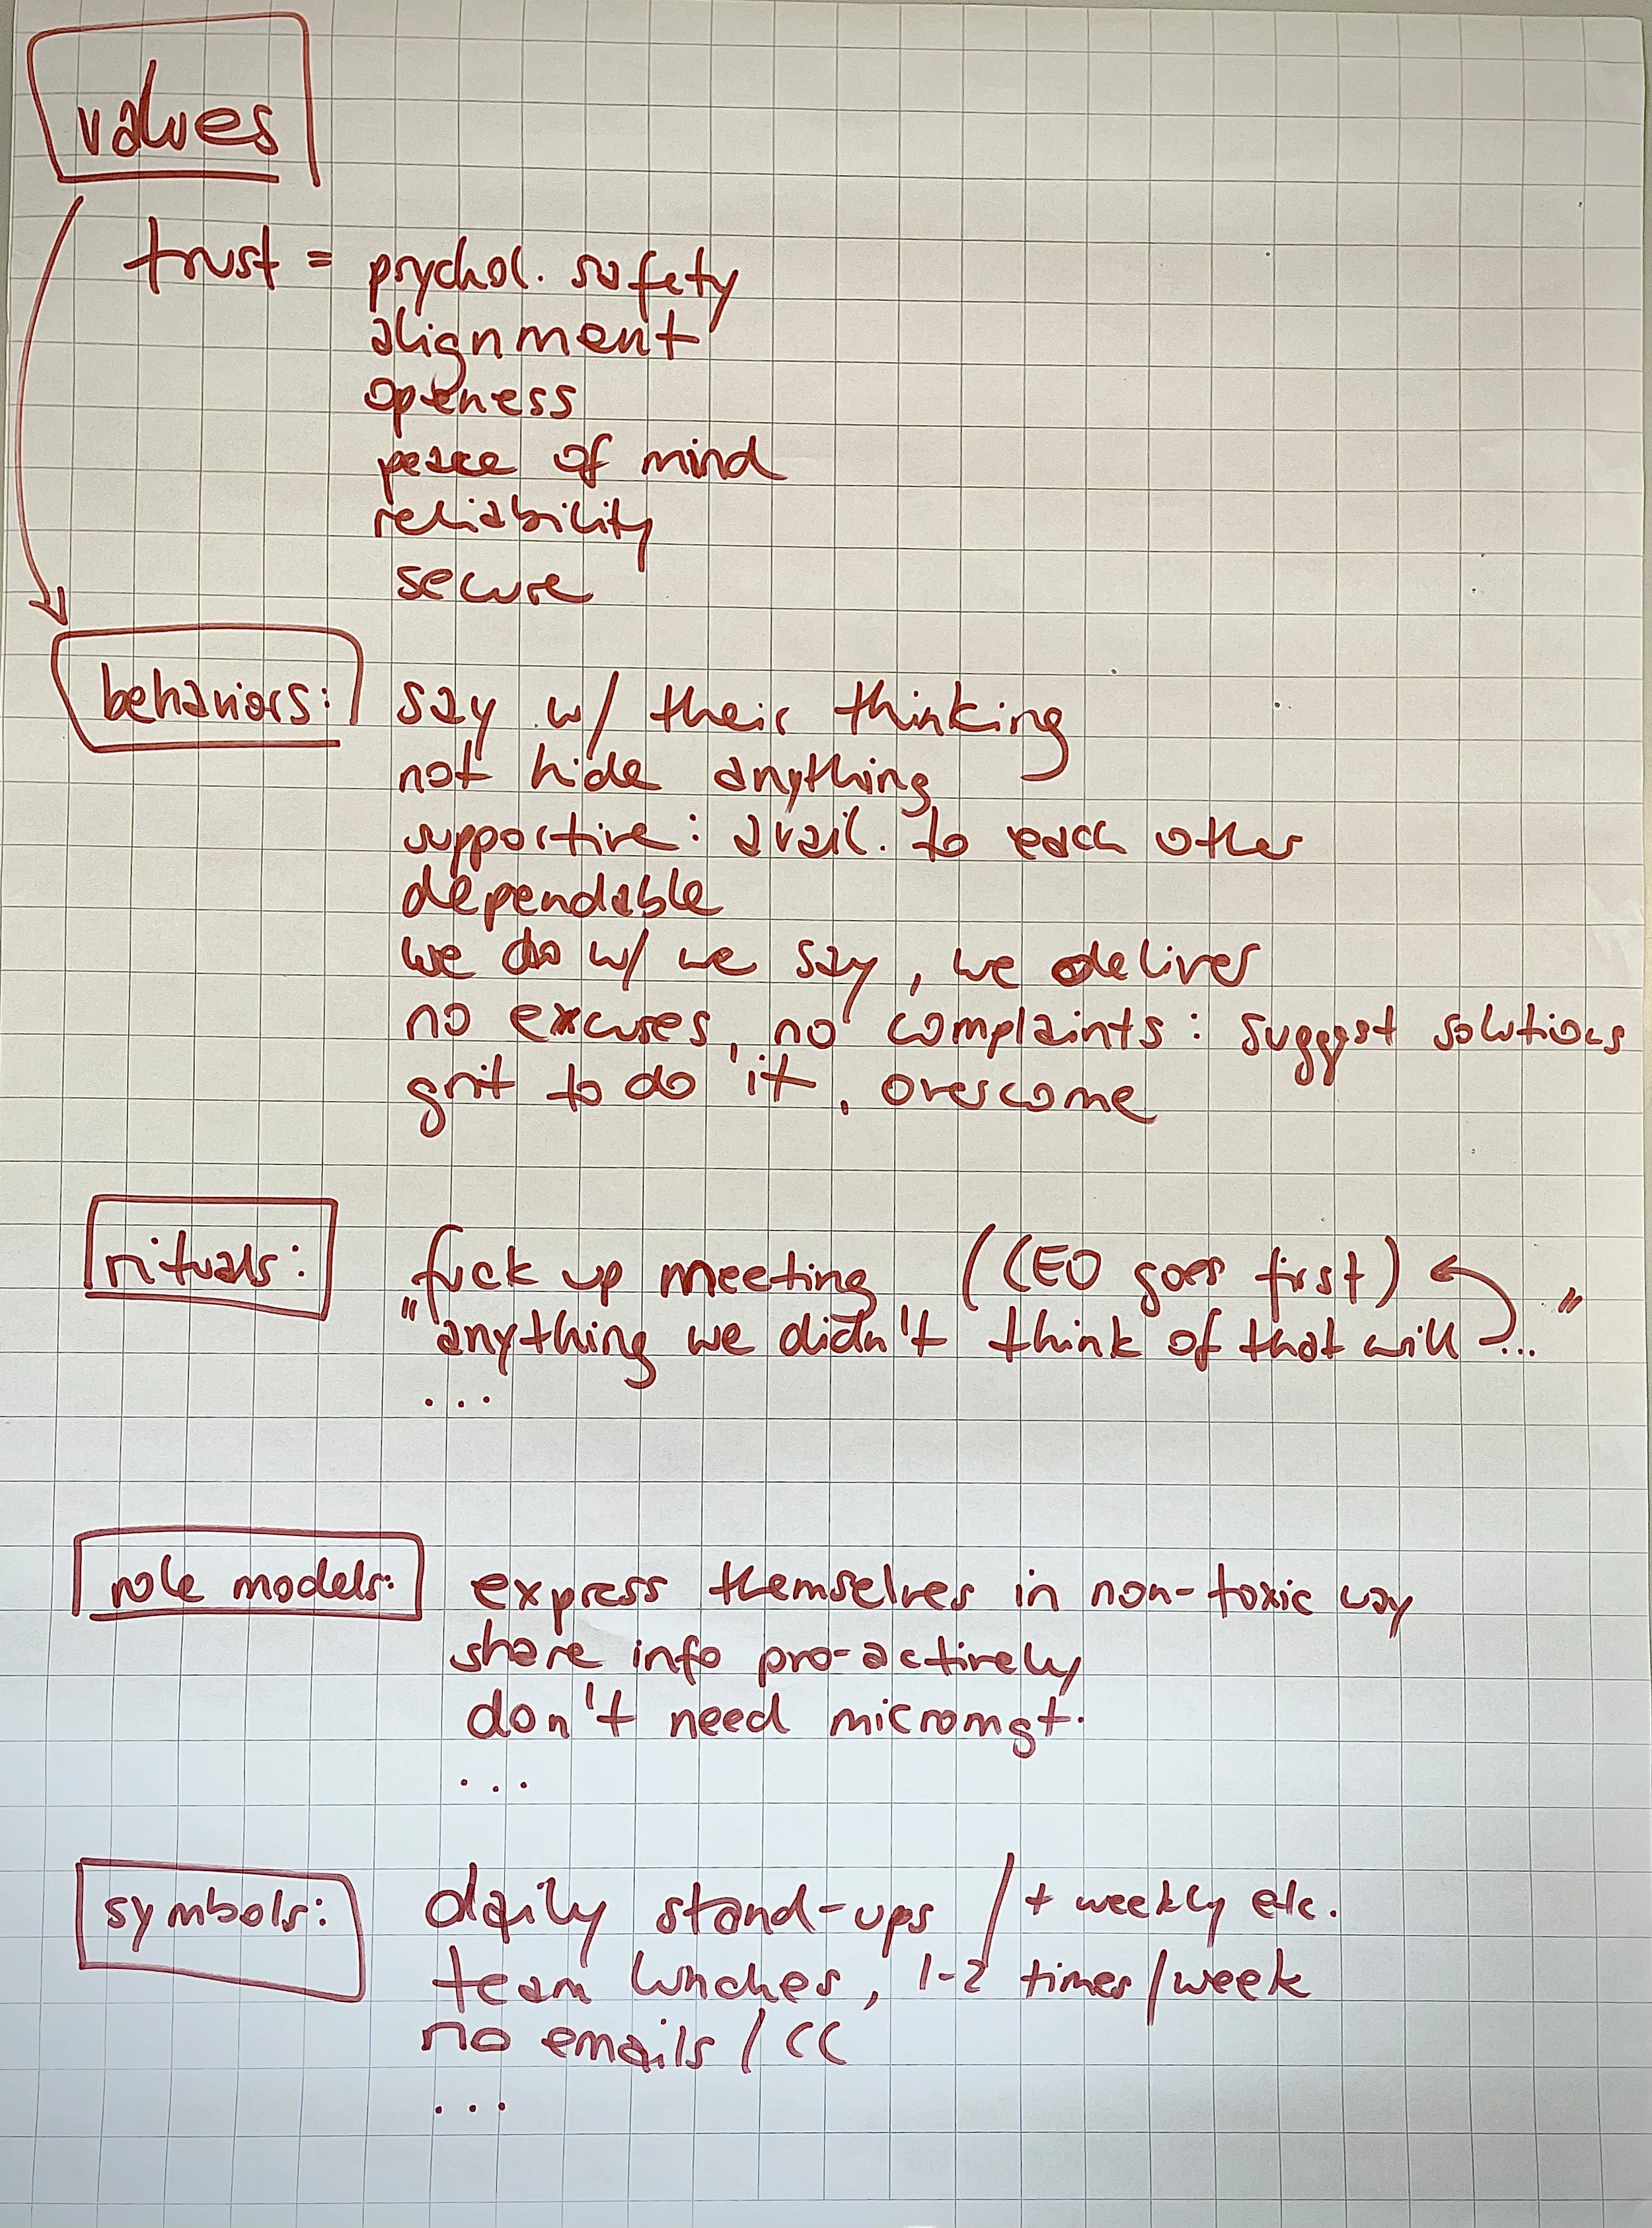 values
trust = psychol. safety
alignment
openess
peace of mind
reliability
secure
behaviors: say w/ their thinking
not hide anything
supportive: avail. to each other
dependable
we do w/ we say, we deliver
no excuses, no complaints: suggest solutions
grit to do it, overcome
rituals: fuck up meeting (CEO goes first)
"anything we didn't think of that will ..."
...
role models: express themselves in non-toxic way
share info pro-actively
don't need micromgt.
...
symbols: daily stand-ups / + weekly etc.
team lunches, 1-2 times/week
no emails / CC
...